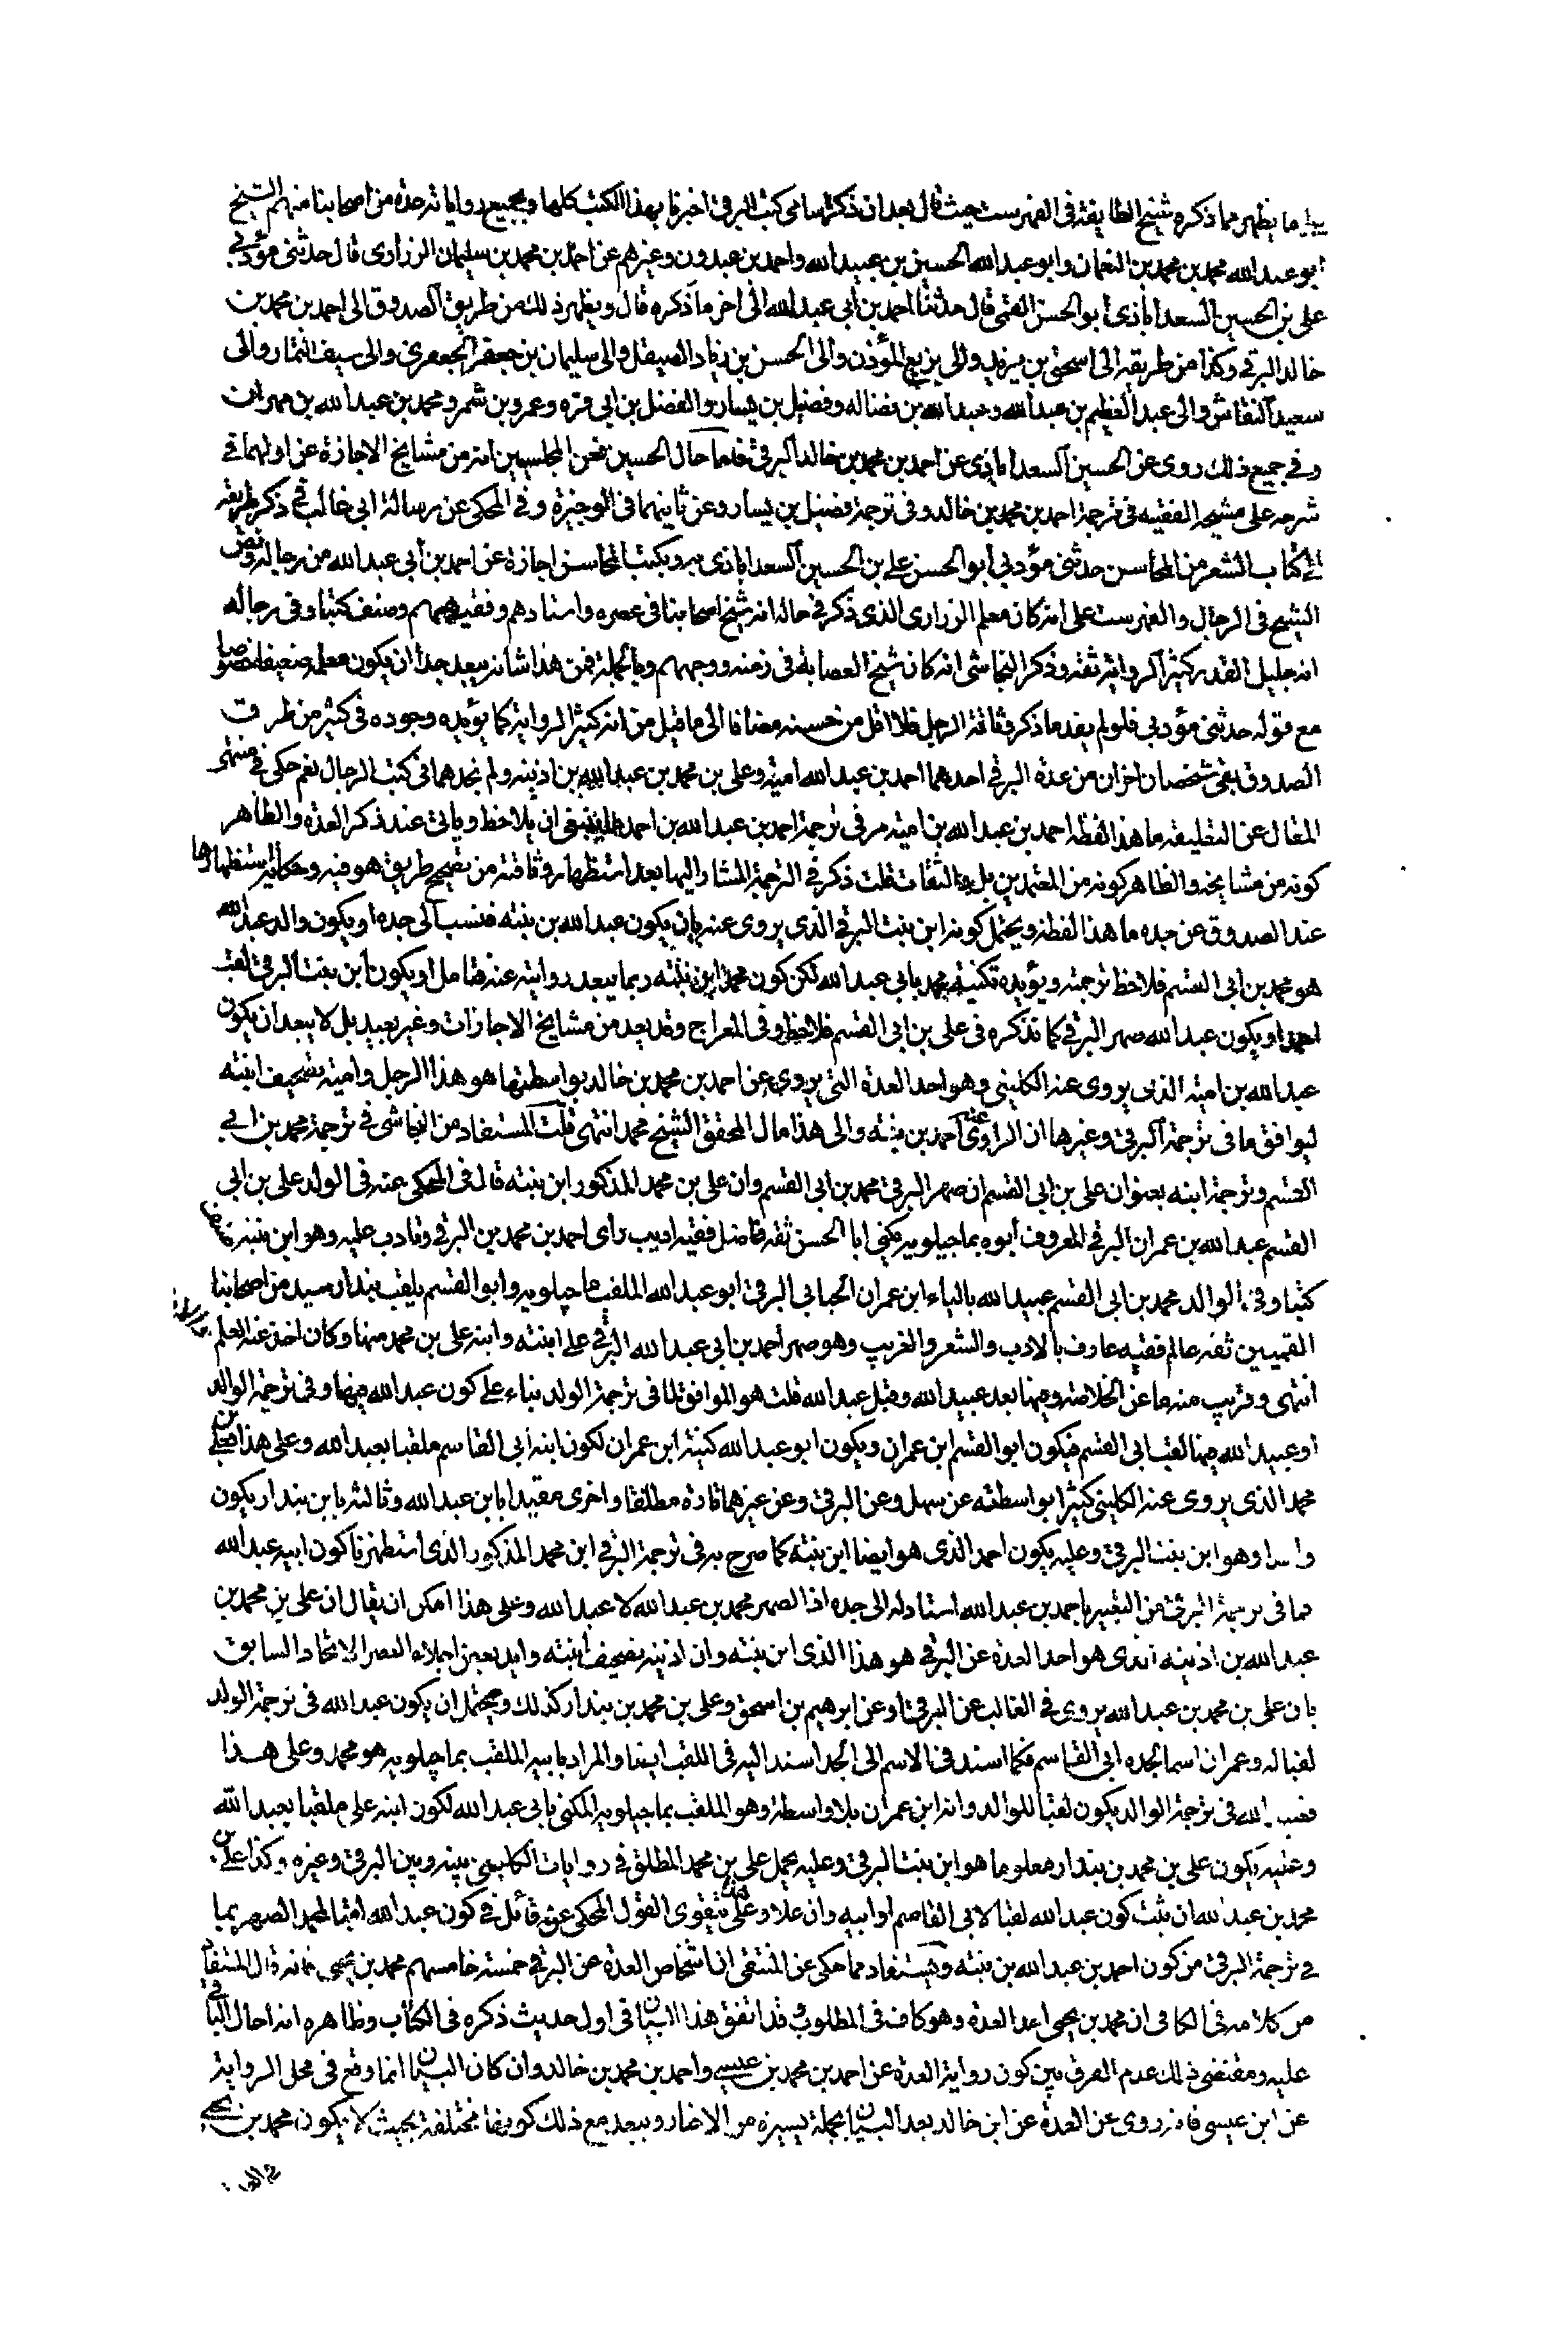 ما يظهر مما ذكره شيخ الطايفة فى الفهرست حيث قال بعد ان ذكر اسامى كتب البرقى اخبرنا بهذا الكتب كلها وبجميع رواياته عدة من اصحابنا منهم الشيخ
ابو عبد الله محمد بن محمد بن النعمان وابو عبد الله الحسين بن عبيد الله واحمد بن عبدون وغيرهم عن احمد بن محمد بن سليمان الزرارى قال حدثنى مؤدبى
على بن الحسين السعدابادى ابو الحسن القمى قال حدثنا احمد بن أبى عبد الله الى اخر ما ذكره قال ويظهر ذلك من طريق الصدوق الى احمد بن محمد بن
خالد البرقى وكذا من طريقه الى اسحق بن يزيد والى بزيع المؤذن والى الحسن بن زياد الصيقل والى سليمان بن جعفر الجعفرى والى سيف التمار والى
سعيد النقاش والى عبد العظيم بن عبد الله وعبد الله بن فضاله وفضيل بن يسار والفضل بن ابى قره وعمرو بن شمر ومحمد بن عبد الله بن مهران
وفى جميع ذلك روى عن الحسين السعدابادى عن احمد بن محمد بن خالد البرقى فاما حال الحسين فعن المجلسيين انه من مشايخ الاجازة عن اولهما فى
شرحه على مشيخه الفقيه فى ترجمة احمد بن محمد بن خالد وفى ترجمة فضيل بن يسار وعن ثانيهما فى الوجيزة وفى المحكى عن رسالة ابى غالب فى ذكر طريقه
الى كتاب الشعر من المحاسن حدثنى مؤدبى أبو الحسن على بن الحسين السعدابادى به وبكتب المحاسن اجازة عن احمد بن أبى عبد الله من رجاله ونص
الشيخ فى الرجال والفهرست على انه كان معلم الزرارى الذى ذكر فى حاله انه شيخ اصحابنا فى عصره واستادهم وفقيههم وصنف كتبا وفى رجاله
انه جليل القدر كثير الرواية ثقه وذكر النجاشى انه كان شيخ العصابة فى زمنه ووجههم وبالجملة فمن هذا شانه يبعد جدا ان يكون معلمه ضعيفا خصوصا
مع قوله حدثنى مؤدبى فلو لم يفد ما ذكر وثاقة الرجل فلا اقل من حسنه مضافا الى ما قيل من انه كثير الرواية كما يؤيده وجوده فى كثير من طرق
الصدوق بقى شخصان اخران من عدة البرقى احدهما احمد بن عبد الله امية وعلى بن محمد بن عبد الله بن اذينه ولم نجدهما فى كتب الرجال نعم حكى فى منتهى
المقال عن التعليقه ما هذا لفظه احمد بن عبد الله بن امية مر فى ترجمة احمد بن عبد الله بن احمد ما ينبغى ان يلاحظ وياتى عند ذكر العدة والظاهر
كونه من مشايخه والظاهر كونه من المعتمدين بل والثقات قلت ذكر فى الترجمة المشار اليها بعد استظهار وثاقته من تصحيح طريق هو فيه وحكاية استظهارها
عند الصدوق عن جده ما هذا لفظه ويحتمل كونه ابن بنت البرقى الذى يروى عنه بان يكون عبد الله بن بنته فنسب الى جده او يكون والد عبد الله
هو محمد بن ابى القسم فلاحظ ترجمته ويؤيده تكنيته محمد بابى عبد الله لكن كون محمد ابن بنته ربما يبعد روايته عنه فتامل او يكون ابن بنت البرقى لقب
احمد او يكون عبد الله صهر البرقى كما تذكره فى على بن ابى القسم فلاحظ وفى المعراج وقد يعد من مشايخ الاجازات وغير بعيد بل لا يبعد ان يكون
عبد الله بن امية الذى يروى عنه الكلينى وهو احد العدة التى يروى عن احمد بن محمد بن خالد بواسطتها هو هذا الرجل وامية تصحيف ابنته
ليوافق ما فى ترجمة البرقى وغيرها ان الراوى عنه احمد بن بنته والى هذا مال المحقق الشيخ محمد انتهى قلت المستفاد من النجاشى فى ترجمة محمد بن ابى
القسم وترجمة ابنه بعنوان على بن ابى القسم ان صهر البرقى محمد بن ابى القسم وان على بن محمد المذكور ابن بنته قال فى المحكى عنه فى الولد على بن ابى
القسم عبد الله بن عمران البرقى المعروف أبوه بماجيلويه يكنى ابا الحسن ثقه فاضل فقيه اديب راى احمد بن محمد بن البرقى وتادب عليه وهو ابن بنته صنف
كتبا وفى الوالد محمد بن ابى القسم عبيد الله بالياء ابن عمران الجبابى البرقى ابو عبد الله الملقب ماجيلويه وابو القسم يلقب بندار سيد من اصحابنا
القميين ثقه عالم فقيه عارف بالادب والشعر والغريب وهو صهر احمد بن ابى عبد الله البرقى على ابنته وابنه على بن محمد منها وكان اخذ عنه العلم
انتهى وقريب منه ما عن الخلاصة وفيها بعد عبيد الله وقيل عبد الله قلت هو الموافق لما فى ترجمة الولد بناء على كون عبد الله فيها وفى ترجمة الوالد
او عبيد الله فيها لقب ابى القسم فيكون ابو القسم ابن عمران ويكون ابو عبد الله كنية ابن عمران لكون ابنه أبى القاسم ملقبا بعبد الله وعلى هذا فعلى بن
محمد الذى يروى عنه الكلينى كثيرا بواسطته عن سهل وعن البرقى وعن غيرهما تارة مطلقا واخرى مقيدا بابن عبد الله وثالثه بابن بندار يكون
واحدا وهو ابن بنت البرقى وعليه يكون احمد الذى هو ايضا ابن بنته كما صرح به فى ترجمة البرقى ابن محمد المذكور الذى استظهرنا كون ابيه عبد الله
فما فى ترجمة البرقى من التعبير باحمد بن عبد الله اسنادله الى جده اذ الصهر محمد بن عبد الله لا عبد الله وعلى هذا امكن ان يقال ان على بن محمد بن
عبد الله بن اذينه الذى هو احد العدة عن البرقى هو هذا الذى ابن بنته وان اذينه تصحيف ابنته وايد بعض اجلاء العصر الاتحاد السابق
بان على بن محمد بن عبد الله يروى فى الغالب عن البرقى وعن ابرهيم بن اسحق وعلى بن محمد بن بندار كذلك ويحتمل ان يكون عبد الله فى ترجمة الولد
لقبا له وعمران اسما لجده ابى القاسم فكما اسند فى الاسم الى الجد اسند اليه فى اللقب ايضا والمراد بابيه الملقب بماجيلويه هو محمد وعلى هذا
فعبد الله فى ترجمة الوالد يكون لقبا للوالد وانه ابن عمران بلا واسطة وهو الملقب بماجيلويه المكنى بابى عبد الله لكون ابنه على ملقبا بعبد الله
وعليه يكون على بن محمد بن بندار معلوما هو ابن بنت البرقى وعليه يحمل على بن محمد المطلق فى روايات الكلينى بينه وبين البرقى وغيره وكذا على بن
محمد بن عبد الله ان ثبت كون عبد الله لقبا لابى القاسم او ابيه وان علا وعلى هذا يتقوى القول المحكى عن قائل فى كون عبد الله لقبا لمحمد الصهر بما
فى ترجمة البرقى من كون احمد بن عبد الله بن بنته ويستفاد مما حكى عن المنتقى ان اشخاص العدة عن البرقى خمسة خامسهم محمد بن يحيى فانه قال المستفاد
من كلامه فى الكافى ان محمد بن يحيى احد العدة وهو كاف فى المطلوب وقد اتفق هذا البيان فى اول حديث ذكره فى الكتاب وظاهره انه احال الباقى
عليه ومقتضى ذلك عدم الفرق بين كون رواية العدة عن احمد بن محمد بن عيسى واحمد بن محمد بن خالد وان كان البيان انما وقع فى محل الرواية
عن ابن عيسى فانه روى عن العدة عن ابن خالد بعد البيان بجملة يسيرة من الاخبار ويبعد مع ذلك كونها مختلفة بحيث لا يكون محمد بن يحيى